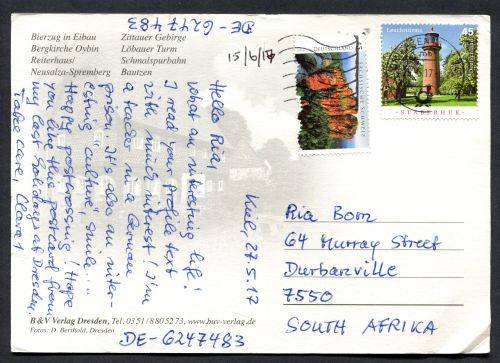 DE-6247483
Bierzug in Eibau
Bergkirche Oybin
Reiterhaus/
Neusalza-Spremberg
Zittauer Gebirge
Löbauer Turm
Schmalspurbahn
Bautzen
15/6/17
DEUTSCHLAND
Leuchttürme
45
STABERHUK
17
Kiel, 27.5.17
Hello Ria,
what an interesting life!
I read your profile text
with much interest! I'm
a teacher in a German
prison. It's also an inter-
esting "culture", smile...
Happy postcrossing! Hope
you like this postcard from
my last holidays at Dresden.
Take care, Clara
Ria Born
64 Murray Street
Durbanville
7550
SOUTH AFRIKA
B & V Verlag Dresden, Tel. 03 51/8 80 52 73, www.buv-verlag.de
Fotos: D. Berthold, Dresden
DE-6247483